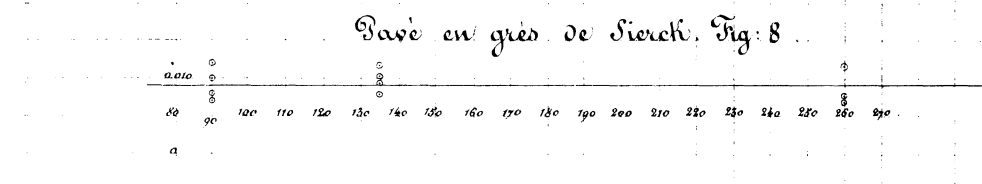 Pavé en grès de Sierck. Fig: 8
0.010
80 90 100 110 120 130 140 150 160 170 180 190 200 210 220 230 240 250 260 270
a